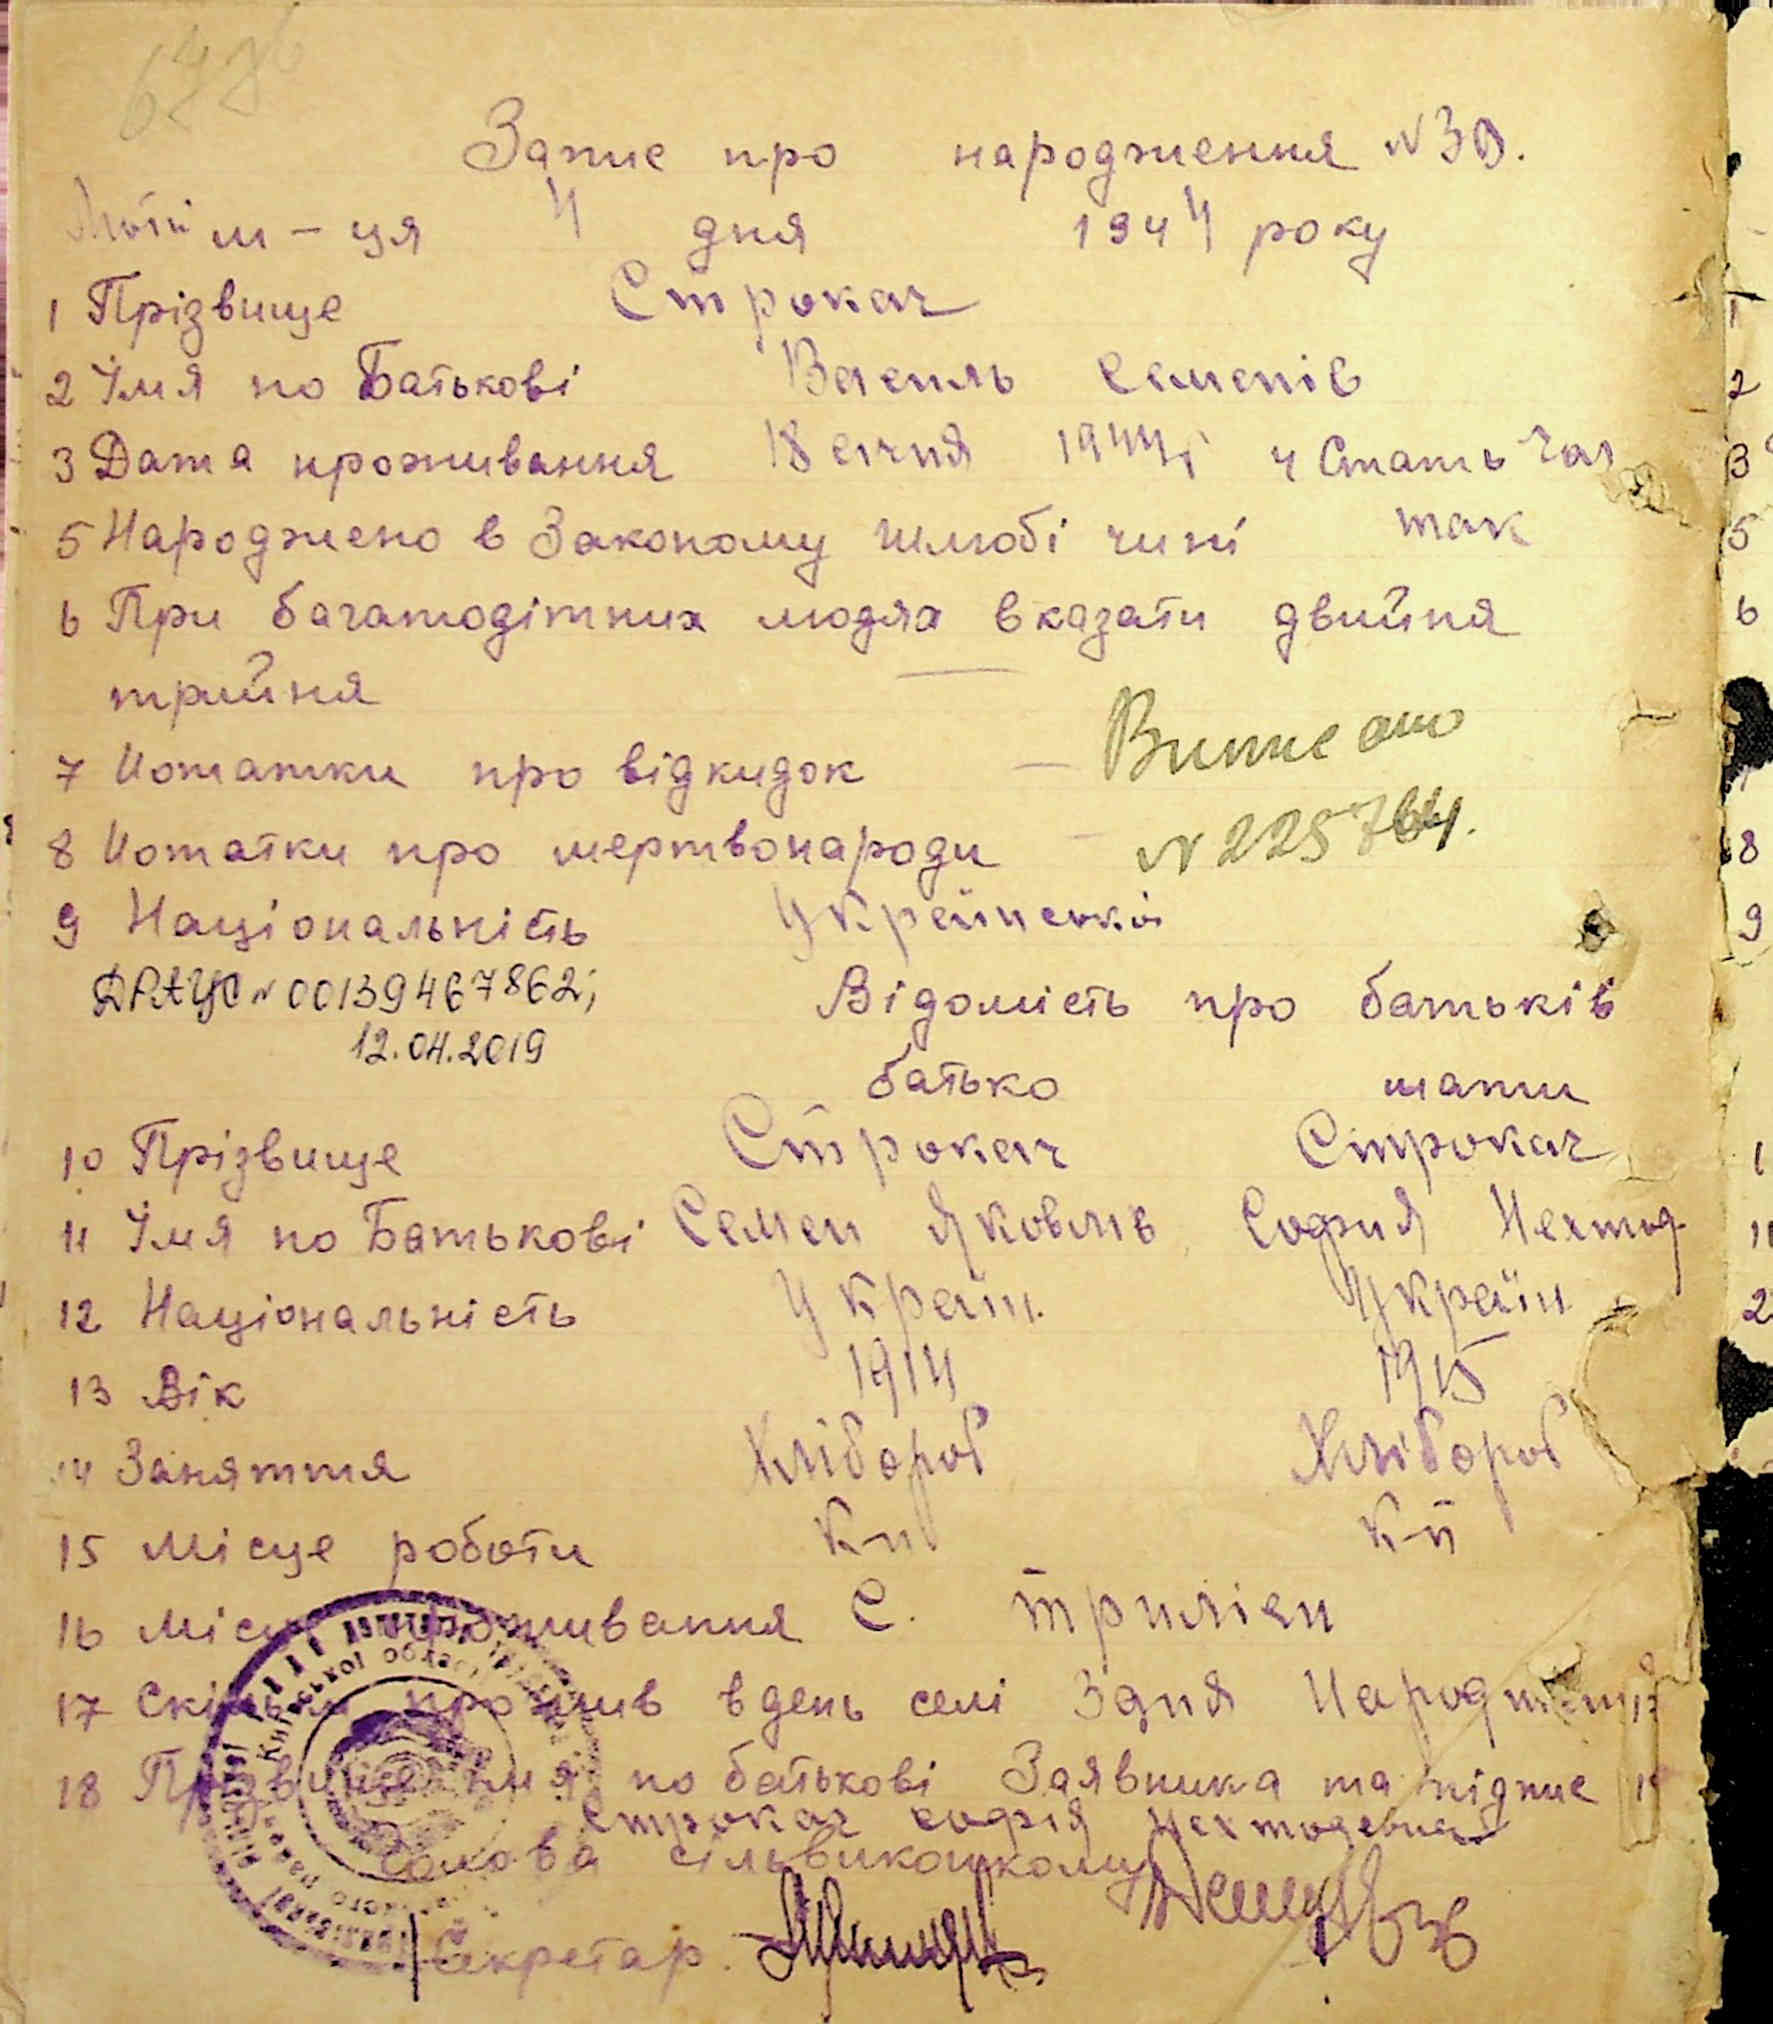 Запис про народження N 39.
м-ця 4 дня 1944 року
1 Прізвище Строкач
2 Імя по Батькові Василь Семенів
3 Дата проживання 18 січня 1944 р 4 Стать Чол
5 Народжено в Законому шлюбі чи ні так
6 При багатодітних людях вказати двийня
трийня —
7 Нотатки про відкидок — Виписано
8 Нотатки про мертвонароди — N 225764.
9 Національність Українські
ДРАЦС N 00139467862;
12.04.2019
Відомість про батьків
батько мати
10 Прізвище Строкач Строкач
11 Імя по Батькові Семен Яковлів София Нехтод
12 Національність Україн. Україн
13 Вік 1914 1915
14 Заняття Хлібороб Хлібороб
15 Місце роботи
16 Місце проживання С. Триліси
17 Скільки прожив в день селі З дня Народження
18 Прізвище імя по батькові Заявника та підпис
Строкач Софія Нехтодевна
Голова сільвиконкому
Секретар.
Київської області